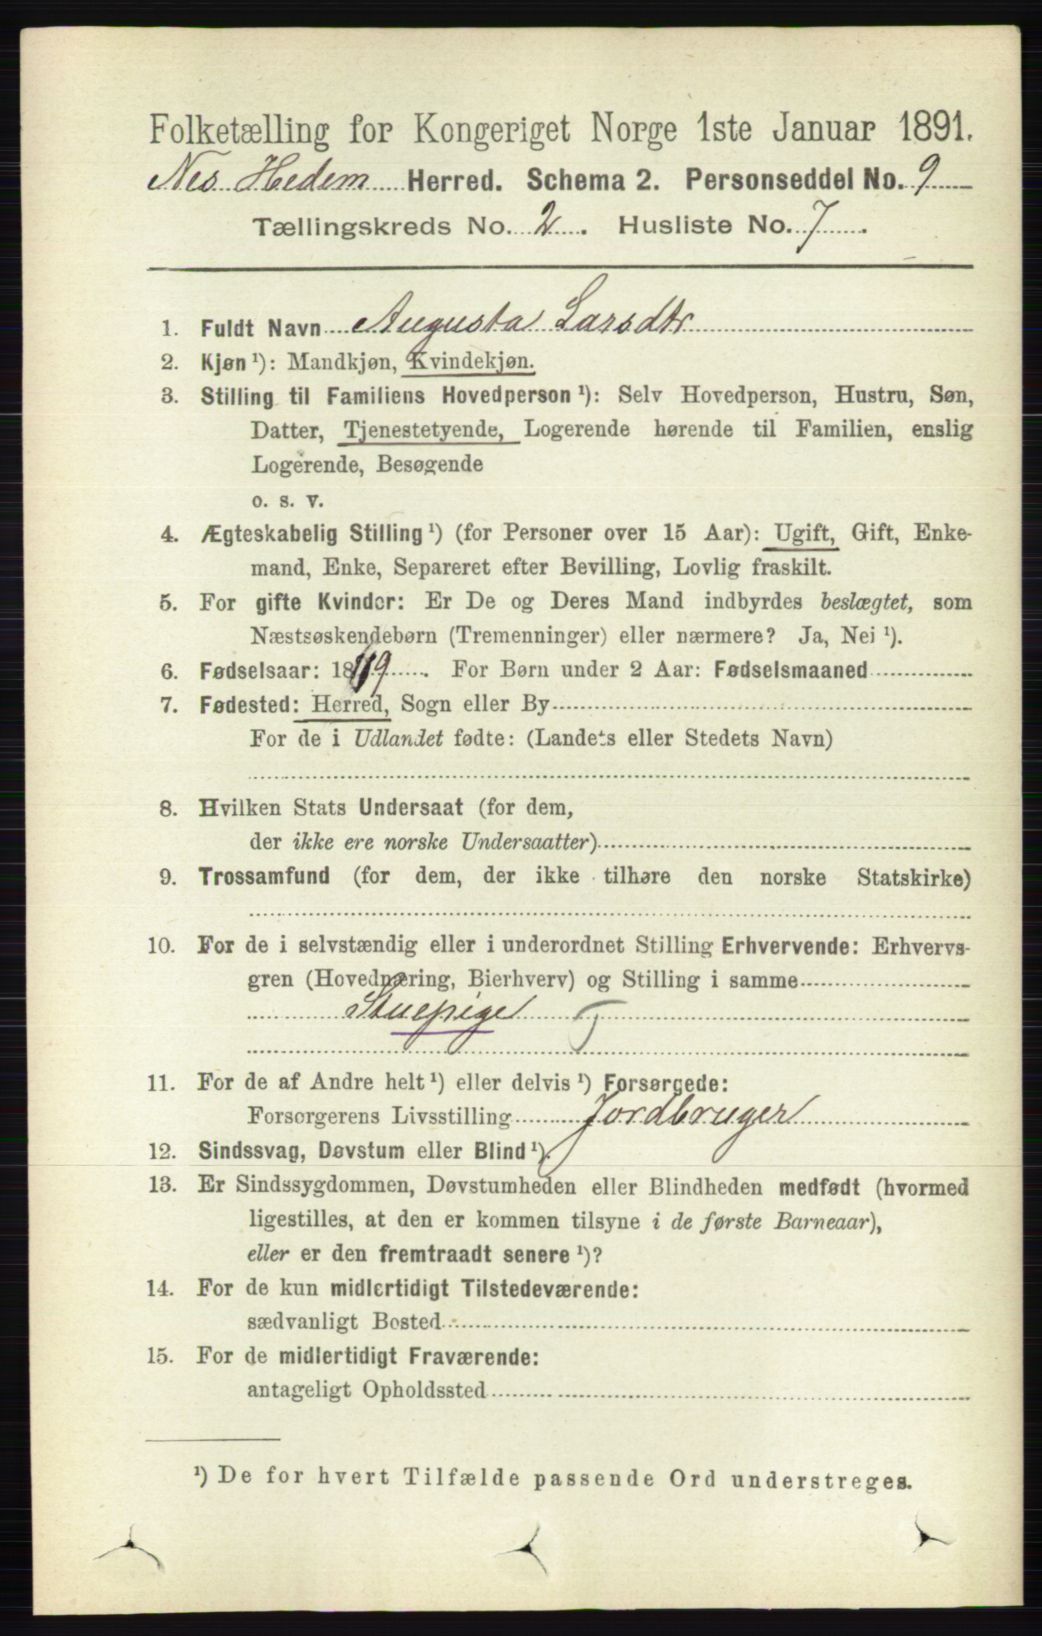 Folketælling for Kongeriget Norge 1ste Januar 1891.
Nes Hedem Herred. Schema 2. Personseddel No. 9
Tællingskreds No. 2. Husliste No. 7.
1. Fuldt Navn Augusta Larsdtr
2. Kjøn ¹): Mandkjøn, Kvindekjøn.
3. Stilling til Familiens Hovedperson ¹): Selv Hovedperson, Hustru, Søn,
Datter, Tjenestetyende, Logerende hørende til Familien, enslig
Logerende, Besøgende
o. s. v.
4. Ægteskabelig Stilling ¹) (for Personer over 15 Aar): Ugift, Gift, Enke-
mand, Enke, Separeret efter Bevilling, Lovlig fraskilt.
5. For gifte Kvinder: Er De og Deres Mand indbyrdes beslægtet, som
Næstsøskendebørn (Tremenninger) eller nærmere? Ja, Nei ¹).
6. Fødselsaar: 18 9. For Børn under 2 Aar: Fødselsmaaned
7. Fødested: Herred, Sogn eller By
For de i Udlandet fødte: (Landets eller Stedets Navn)
8. Hvilken Stats Undersaat (for dem,
der ikke ere norske Undersaatter)
9. Trossamfund (for dem, der ikke tilhøre den norske Statskirke)
10. For de i selvstændig eller i underordnet Stilling Erhvervende: Erhvervs-
gren (Hovednæring, Bierhverv) og Stilling i samme
Stuepige
11. For de af Andre helt ¹) eller delvis ¹) Forsørgede:
Forsørgerens Livsstilling Jordbruger
12. Sindssvag, Døvstum eller Blind ¹).
13. Er Sindssygdommen, Døvstumheden eller Blindheden medfødt (hvormed
ligestilles, at den er kommen tilsyne i de første Barneaar),
eller er den fremtraadt senere ¹)?
14. For de kun midlertidigt Tilstedeværende:
sædvanligt Bosted
15. For de midlertidigt Fraværende:
antageligt Opholdssted
¹) De for hvert Tilfælde passende Ord understreges.